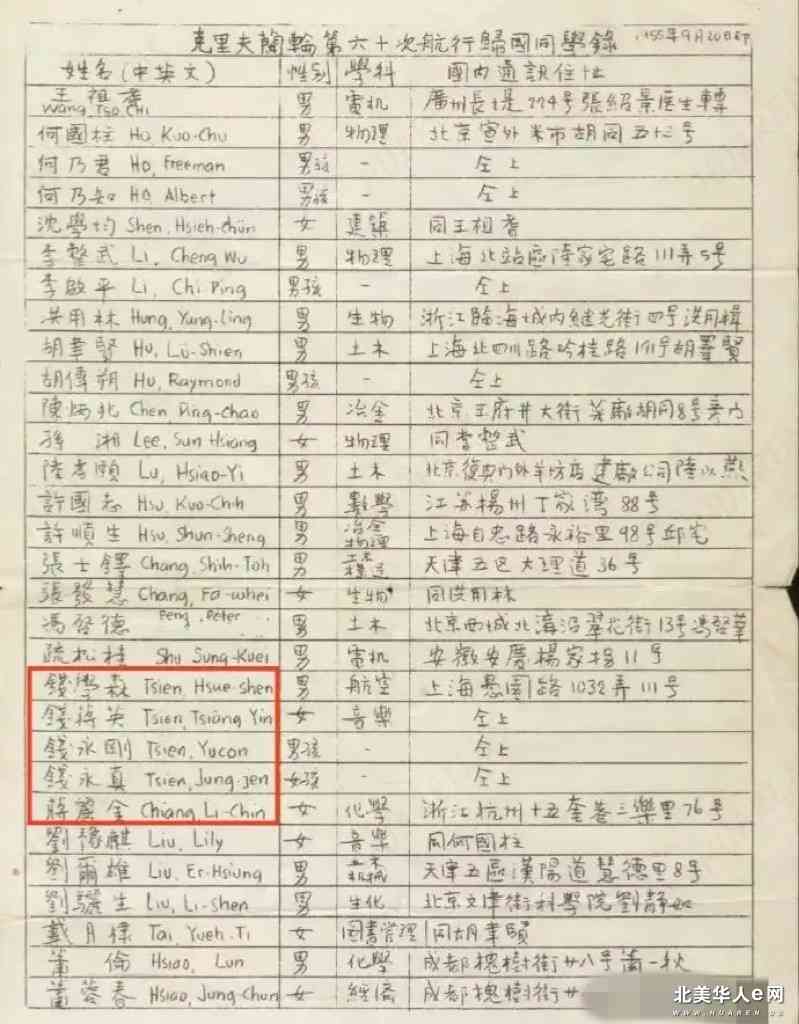 克里夫蘭輪第六十次航行歸國同學錄 1955年9月20日印
姓名(中英文) 性別 學科 國內通訊住址
王祖耆 Wang, Tso Chi 男 電机 廣州長堤774号張紹景医生轉
何國柱 Ho Kuo-Chu 男 物理 北京宣外米市胡同五十三号
何乃君 Ho, Freeman 男孩 - 仝上
何乃知 Ho Albert 男孩 - 仝上
沈學均 Shen, Hsieh-chün 女 建築 同王祖耆
李整武 Li, Cheng Wu 男 物理 上海北站區陸家宅路111弄5号
李啟平 Li, Chi Ping 男孩 - 仝上
洪用林 Hung, Yung-ling 男 生物 浙江臨海城內継光街四号洪用楫
胡聿賢 Hu, Lü-Shien 男 土木 上海北四川路吟桂路171号胡墨賢
胡傳朔 Hu, Raymond 男孩 - 仝上
陳炳兆 Chen, Ping-chao 男 冶金 北京王府井大街菜廠胡同8号
孫湘 Lee, Sun Hsiang 女 物理 同李整武
陸孝頤 Lu, Hsiao-Yi 男 土木 北京復興門外羊坊店建廠公司陸以燕
許國志 Hsu, Kuo-Chih 男 數學 江苏楊州丁家湾88号
許順生 Hsu, Shun-Sheng 男 冶金物理 上海自忠路永裕里98号邱宅
張士鐸 Chang, Shih-Toh 男 天津五区大理道36号
張發慧 Chang, Fa-whei 女 生物 同洪用林
馮啓德 Feng, Peter 男 土木 北京西城北溝沿翠花街13号馮啓華
疏松桂 Shu Sung-Kuei 男 電机 安徽安慶楊家拐11号
錢學森 Tsien, Hsue-shen 男 航空 上海愚園路1032弄111号
錢蔣英 Tsien, Tsiang Yin 女 音樂 仝上
錢永剛 Tsien, Yucon 男孩 - 仝上
錢永真 Tsien, Jung-jen 女孩 - 仝上
蔣麗金 Chiang, Li-Chin 女 化學 浙江杭州十五奎巷三樂里76号
劉豫麒 Liu, Lily 女 音樂 同何國柱
劉爾雄 Liu, Er-Hsiung 男 天津五區漢陽道慧德里8号
劉驪生 Liu, Li-shen 男 生化 北京文津街科學院劉靜如
戴月棣 Tai, Yueh-Ti 女 図書管理 同胡聿賢
蕭倫 Hsiao, Lun 男 化學 成都槐樹街廿八号蕭一秋
蕭蓉春 Hsiao, Jung-Chun 女 經濟 成都槐樹街廿
北美华人e网
WWW.HUAREN.US